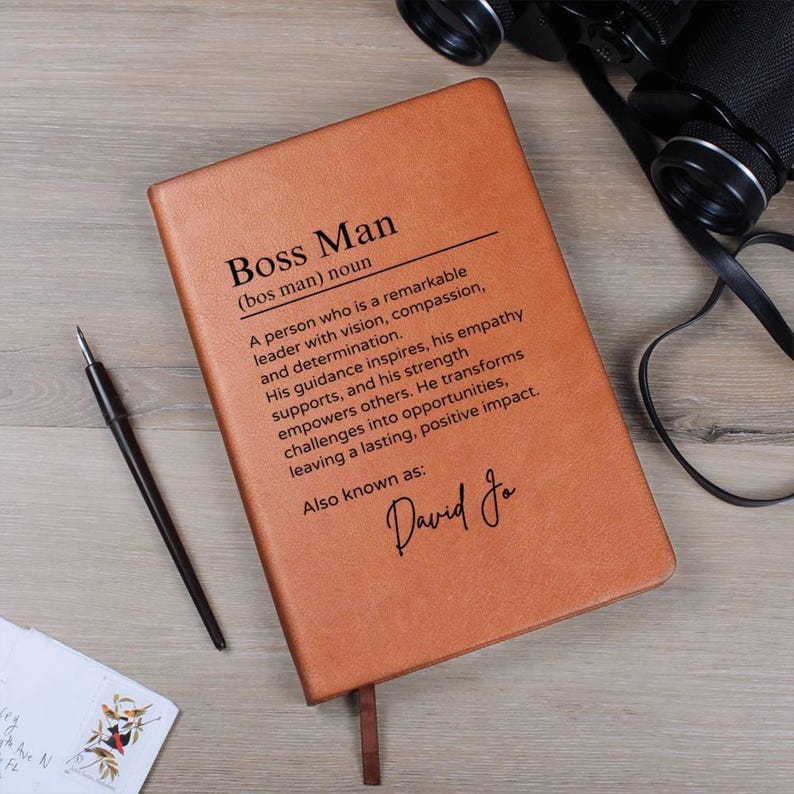 Boss Man
(bos man) noun
A person who is a remarkable
leader with vision, compassion,
and determination.
His guidance inspires, his empathy
supports, and his strength
empowers others. He transforms
challenges into opportunities,
leaving a lasting, positive impact.
Also known as:
David Jo
Ave N
FL